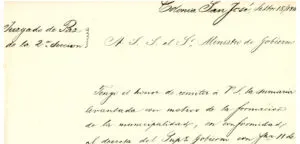 Colonia San José Setbre 15/
Juzgado de Paz
de la 2ª Seccion
A. S. S. el Sr. Ministro de Gobierno
Tengo el honor de remitir a V. S. la sumaria
levantada con motivo de la formacion
de la municipalidad, en conformidad,
al decreto del Supr Gobierno con fha 11 de